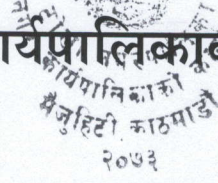 ार्यपालिकाक
कार्यपालिकाको
मैजुहिटी काठमाडौं
२०७३